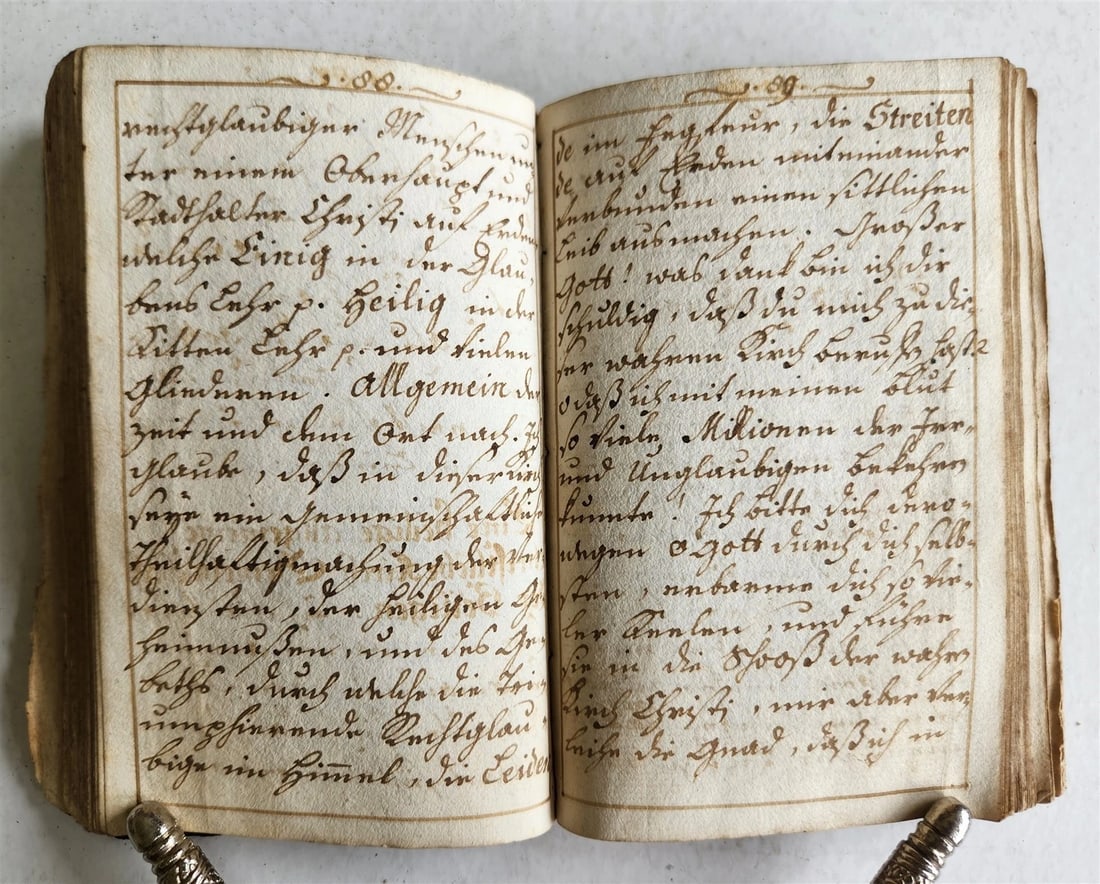 88.
rechtglaubiger Menschen un-
ter einem Oberhaupt und
Stadthalter Christi auf Erden
welche Einig in der Glau-
bens Lehr p. Heilig in der
Sitten Lehr p. und vielen
Gliederen. Allgemein der
Zeit und dem Ort nach. Ich
glaube, daß in dieser Kirch
seÿe ein gemeinschaftliche
Theilhaftigmachung der Ver-
diensten, der heiligen Ge-
heimnußen, und des Ge-
beths, durch welche die Tri-
umphierende Rechtglau-
bige im Himmel, die Leiden
89.
de im Fegfeur, die Streiten
de auf Erden miteinander
verbunden einen sittlichen
Leib ausmachen. Großer
Gott! was dank bin ich dir
schuldig, daß du mich zu die-
ser wahren Kirch beruffen hast
o daß ich mit meinen Blut
so viele Millionen der Irr-
und Unglaubigen bekehren
kunnte! Ich bitte dich dero-
wegen o Gott durch dich selb-
sten, erbarme dich so vie-
ler Seelen, und führe
sie in die Schooß der wahren
Kirch Christi, mir aber ver-
leihe die Gnad, daß ich in